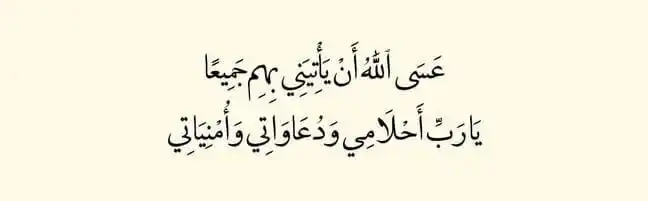 عَسَى ٱللَّهُ أَنْ يَأْتِيَنِي بِهِم جَمِيعًا
يَا رَبِّ أَحْلَامِي وَدُعَاوَاتِي وَأُمْنِيَاتِي